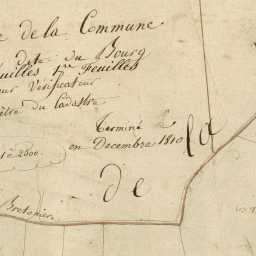 e de la Commune
dite du Bourg
euilles 1re Feuilles
ur Vérificateur
ètre du Cadastre
Terminé le
en Decembre 1810
1 à 2500.
la
de
Bretonier